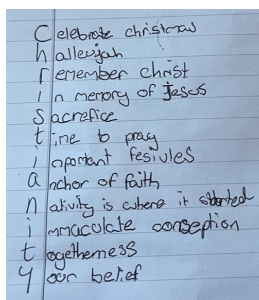 Celebrate christmas
hallelujah
remember christ
In memory of jesus
Sacrefice
time to pray
inportant fesivles
anchor of faith
nativity is where it started
immaculate conseption
togetherness
your belief